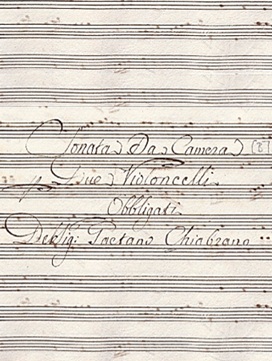 Sonata Da Camera
Due Violoncelli
Obbligati.
Del Sig: Gaetano Chiabrano